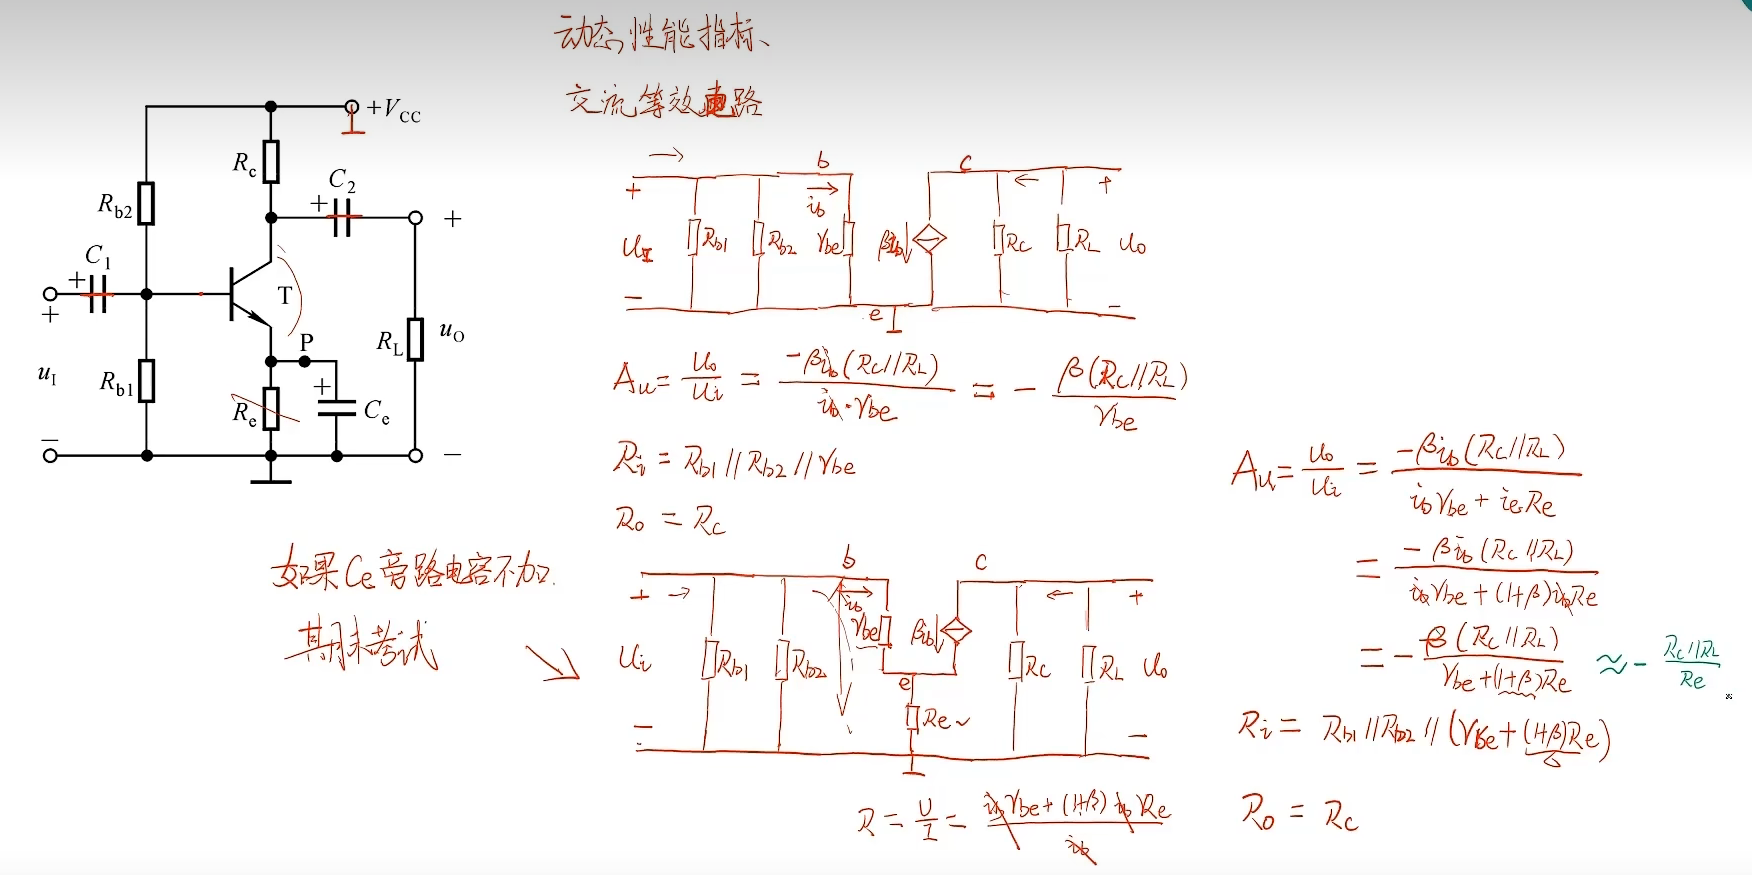 动态性能指标、
交流等效电路
+V_CC
R_c
C_2
+
+
R_b2
C_1
+
+
T
P
R_L
u_O
u_I
R_b1
+
R_e
C_e
−
−
b
c
+
i_b
+
U_I
R_b1
R_b2
r_be
βi_b
R_C
R_L
U_o
−
e
−
A_u = U_o/U_i = −βi_b(R_C//R_L)/(i_b·r_be) = −β(R_C//R_L)/r_be
R_i = R_b1//R_b2//r_be
R_o = R_C
如果Ce旁路电容不加.
期末考试
b
c
+
i_b
+
U_i
R_b1
R_b2
r_be
βi_b
R_C
R_L
U_o
e
R_e
−
−
R = U/I = (i_b r_be + (1+β) i_b R_e)/i_b
A_u = U_o/U_i = −βi_b(R_C//R_L)/(i_b r_be + i_e R_e)
= −βi_b(R_C//R_L)/(i_b r_be + (1+β)i_b R_e)
= −β(R_C//R_L)/(r_be + (1+β)R_e) ≈ − R_C//R_L/R_e
R_i = R_b1//R_b2//(r_be + (1+β)R_e)
R_o = R_C